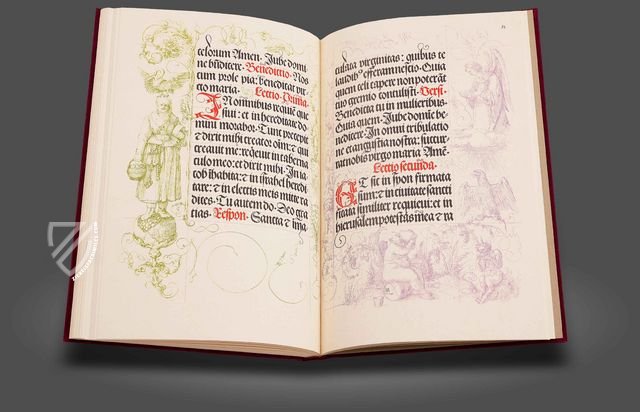 celorum Amen. Jube domi
ne bñdicere. Benedictio. Nos
cum prole pia: benedicat vir
go maria. Lectio Prima.
IN omnibus requiē que
siui: et in hereditate do
mini morabor. Tunc precepit
et dixit mihi creator oīm: et qui
creauit me: requieuit in taberna
culo meo: et dixit mihi. In ia
cob īhabita: et in israhel heredi
tare: et in electis meis mitte ra
dices. Tu autem do. Deo gra
tias. Respon. Sancta et īma
culata virginitas: quibus te
laudibꝰ efferam nescio. Quia
quem celi capere non poterāt
tuo gremio contulisti. Versi.
Benedicta tu in mulieribus.
Quia quem. Jube domīe be
nedicere. In omni tribulatio
ne et angustia nostra: succur
rat nobis virgo maria. Amē.
Lectio secunda.
ET sic in syon firmata
sum: et in ciuitate sancti
ficata similiter requieui: et in
hierusalem potestas mea et ra